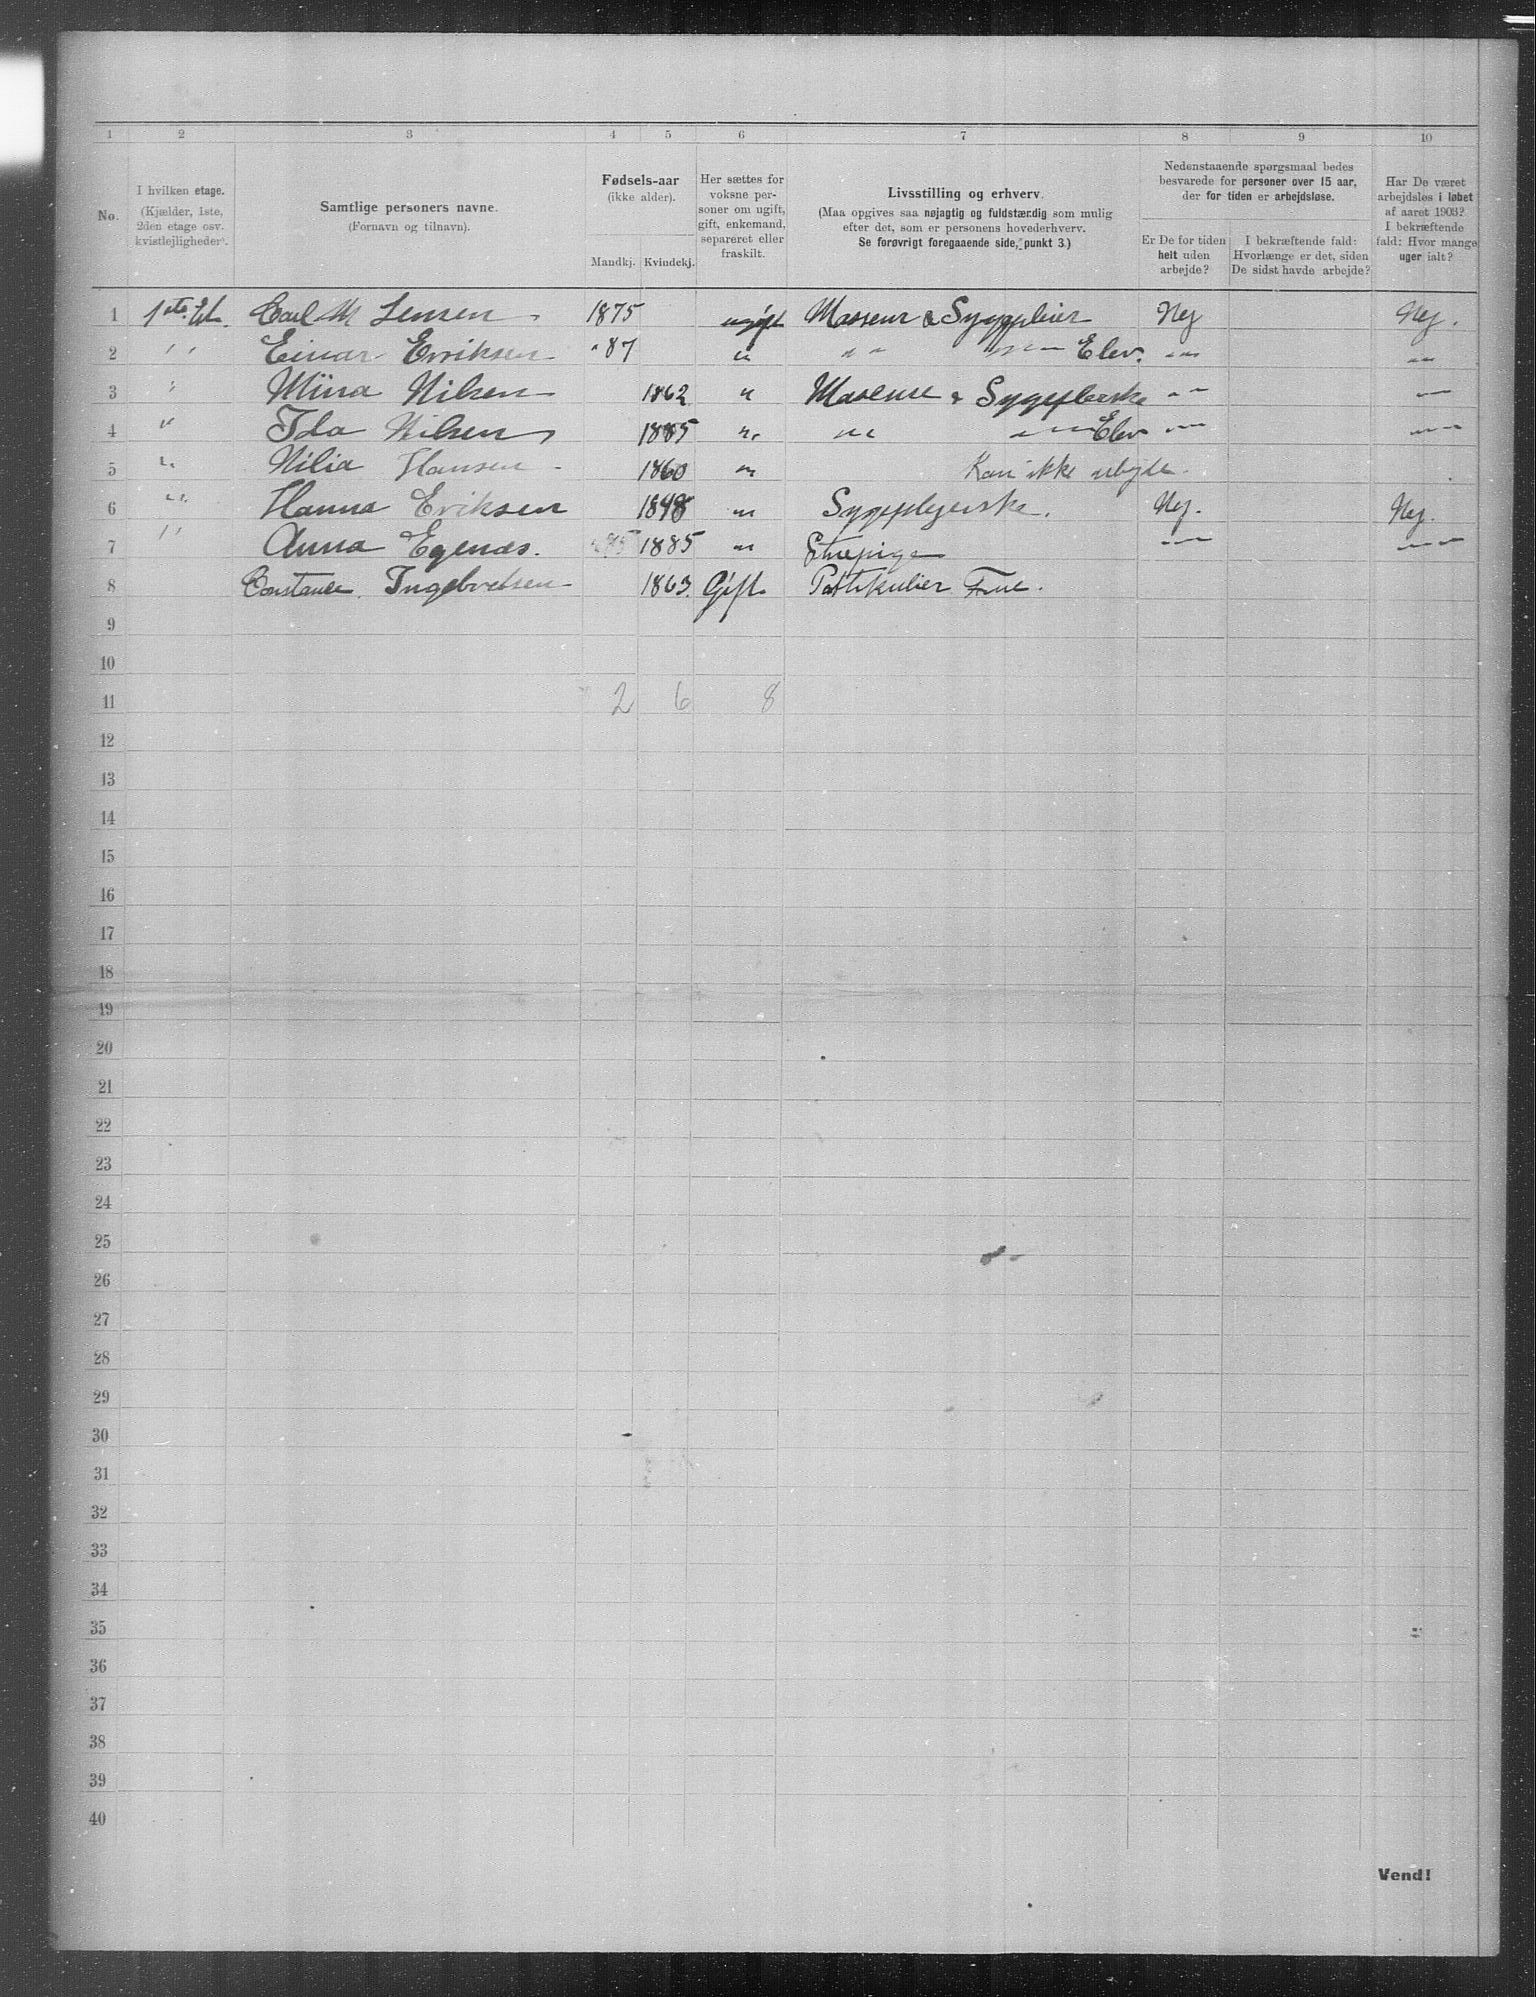 1 2 3 4 5 6 7 8 9 10
No.
I hvilken etage.
(Kjælder, 1ste,
2den etage osv.
kvistleiligheder).
Samtlige personers navne.
(Fornavn og tilnavn).
Fødsels-aar
(ikke alder).
Mandkj. Kvindekj.
Her sættes for
voksne per-
soner om ugift,
gift, enkemand,
separeret eller
fraskilt.
Livsstilling og erhverv.
(Maa opgives saa nøjagtig og fuldstændig som mulig
efter det, som er personens hovederhverv.
Se forøvrigt foregaaende side, punkt 3.)
Nedenstaaende spørgsmaal bedes
besvarede for personer over 15 aar,
der for tiden er arbejdsløse.
Er De for tiden
helt uden
arbejde?
I bekræftende fald:
Hvorlænge er det, siden
De sidst havde arbejde?
Har De været
arbejdsløs i løbet
af aaret 1903?
I bekræftende
fald: Hvor mange
uger ialt?
1 1ste Et. Carl M Jensen 1875 ugift Masseur & Sygepleier Nej Nej.
2 " " Einar Eriksen " 87 " " " " " Elev. " " " "
3 " Mina Nilsen 1862 " Maseuse & Sygepleierske " " " "
4 " Ida Nilsen 1885 " " " " " Elev " " " "
5 " Nilia Hansen 1860 " Kan ikke arbejde.
6 " Hanna Eriksen 1848 " Sygeplejerske. Nej. Nej.
7 " Anna Egenæs. 1885 " Stuepige " " " "
8 Constance Ingebretsen 1863. Gift Partikulier Frue.
9
10
11 2 6 8
12
13
14
15
16
17
18
19
20
21
22
23
24
25
26
27
28
29
30
31
32
33
34
35
36
37
38
39
40
Vend!